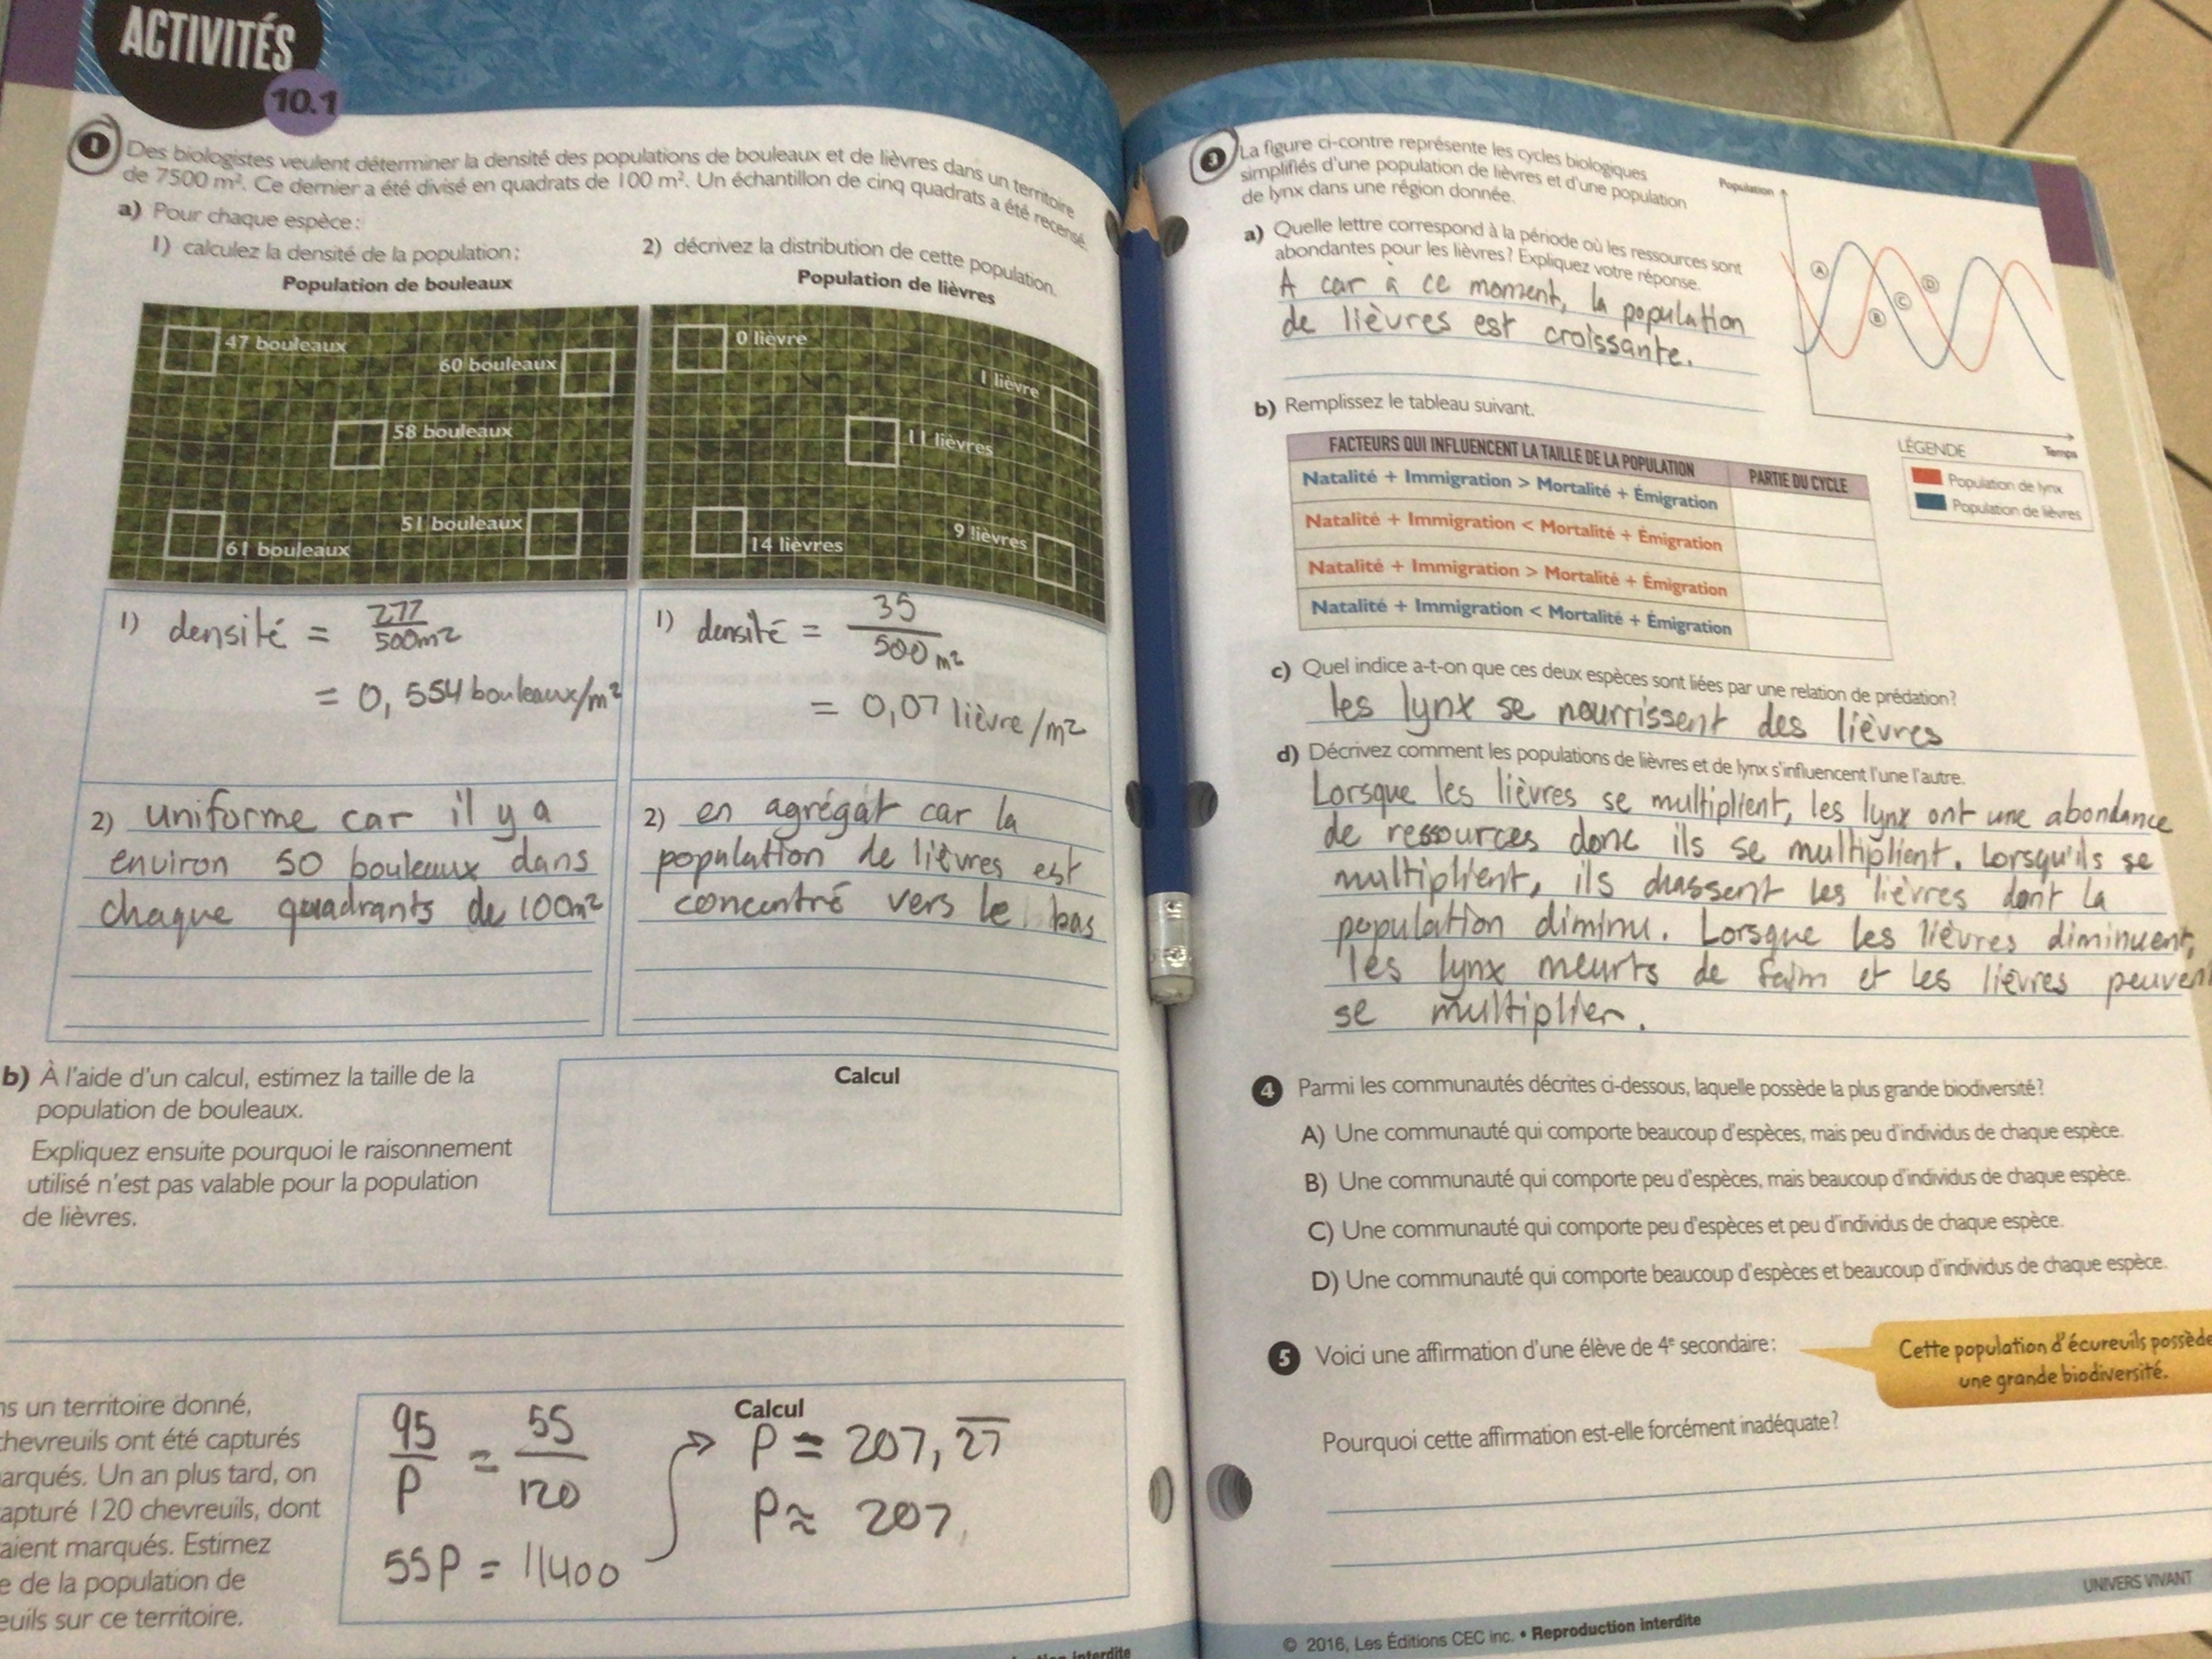 ACTIVITÉS
10.1
1 Des biologistes veulent déterminer la densité des populations de bouleaux et de lièvres dans un territoire
de 7500 m². Ce dernier a été divisé en quadrats de 100 m². Un échantillon de cinq quadrats a été recensé.
a) Pour chaque espèce :
1) calculez la densité de la population ;
2) décrivez la distribution de cette population.
Population de bouleaux
47 bouleaux
60 bouleaux
58 bouleaux
51 bouleaux
61 bouleaux
Population de lièvres
0 lièvre
1 lièvre
11 lièvres
9 lièvres
14 lièvres
1) densité = 277/500m²
= 0,554 bouleaux/m²
2) uniforme car il y a
environ 50 bouleaux dans
chaque quadrants de 100m²
1) densité = 35/500 m²
= 0,07 lièvre/m²
2) en agrégat car la
population de lièvres est
concentré vers le bas
b) À l'aide d'un calcul, estimez la taille de la
population de bouleaux.
Expliquez ensuite pourquoi le raisonnement
utilisé n'est pas valable pour la population
de lièvres.
Calcul
un territoire donné,
chevreuils ont été capturés
Un an plus tard, on
120 chevreuils, dont
marqués. Estimez
de la population de
sur ce territoire.
Calcul
95/P = 55/120
55P = 11400
P = 207,27
P ≈ 207
3 La figure ci-contre représente les cycles biologiques
simplifiés d'une population de lièvres et d'une population
de lynx dans une région donnée.
a) Quelle lettre correspond à la période où les ressources sont
abondantes pour les lièvres ? Expliquez votre réponse.
A car à ce moment, la population
de lièvres est croissante.
Population
A
B
C
D
Temps
LÉGENDE
Population de lynx
Population de lièvres
b) Remplissez le tableau suivant.
FACTEURS QUI INFLUENCENT LA TAILLE DE LA POPULATION PARTIE DU CYCLE
Natalité + Immigration > Mortalité + Émigration
Natalité + Immigration < Mortalité + Émigration
Natalité + Immigration > Mortalité + Émigration
Natalité + Immigration < Mortalité + Émigration
c) Quel indice a-t-on que ces deux espèces sont liées par une relation de prédation ?
les lynx se nourrissent des lièvres
d) Décrivez comment les populations de lièvres et de lynx s'influencent l'une l'autre.
Lorsque les lièvres se multiplient, les lynx ont une abondance
de ressources donc ils se multiplient. Lorsqu'ils se
multiplient, ils chassent les lièvres dont la
population diminu. Lorsque les lièvres diminuent,
les lynx meurts de faim et les lièvres peuvent
se multiplier.
4 Parmi les communautés décrites ci-dessous, laquelle possède la plus grande biodiversité ?
A) Une communauté qui comporte beaucoup d'espèces, mais peu d'individus de chaque espèce.
B) Une communauté qui comporte peu d'espèces, mais beaucoup d'individus de chaque espèce.
C) Une communauté qui comporte peu d'espèces et peu d'individus de chaque espèce.
D) Une communauté qui comporte beaucoup d'espèces et beaucoup d'individus de chaque espèce.
5 Voici une affirmation d'une élève de 4e secondaire :
Cette population d'écureuils possède
une grande biodiversité.
Pourquoi cette affirmation est-elle forcément inadéquate ?
UNIVERS VIVANT
© 2016, Les Éditions CEC inc. • Reproduction interdite
interdite